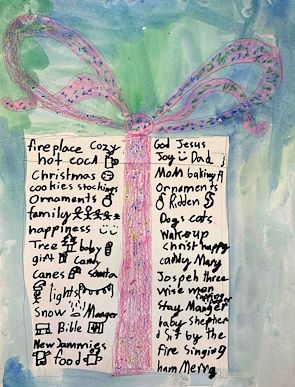 fireplace cozy
hot coco
Christmas
cookies stockings
Ornaments
family
happiness
Tree baby
gift candy
canes santa
lights
Snow Manger
Bible
New Jammies
food
God Jesus
Joy Dad
Mom baking
Ornaments
Ribben
Dogs cats
Wakeup
christ happy
candy Mary
Jospeh three
wise men
Stay Manger
baby shepher
d sit by the
Fire Singing
ham Merry